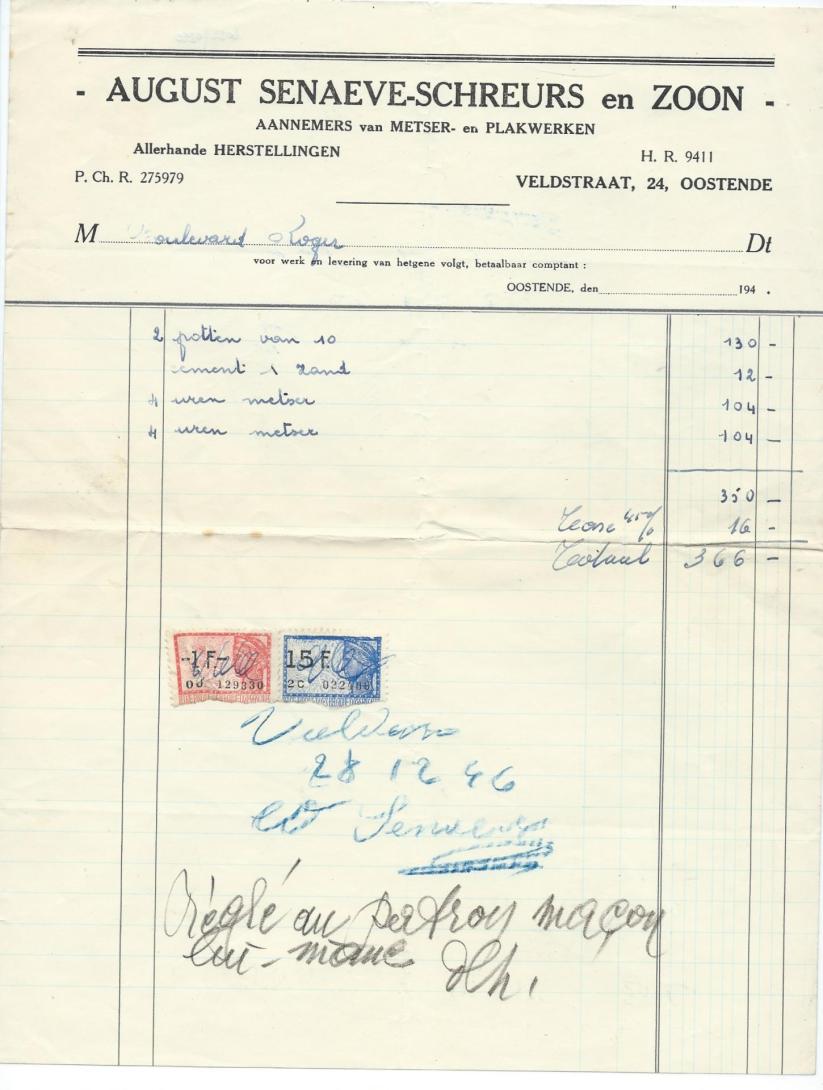 - AUGUST SENAEVE-SCHREURS en ZOON -
AANNEMERS van METSER- en PLAKWERKEN
Allerhande HERSTELLINGEN
H. R. 9411
P. Ch. R. 275979
VELDSTRAAT, 24, OOSTENDE
M Boulevard Roger Dt
voor werk en levering van hetgene volgt, betaalbaar comptant :
OOSTENDE, den 194 .
2 potten van 10 130 -
cement & zand 12 -
4 uren metser 104 -
4 uren metser 104 -
350 -
Taxe 4.50/0 16 -
Totaal 366 -
-1 F.- 15 F.
129330 2C
Voldaan
28 12 46
Senaeve
Réglé au patron maçon
lui-même